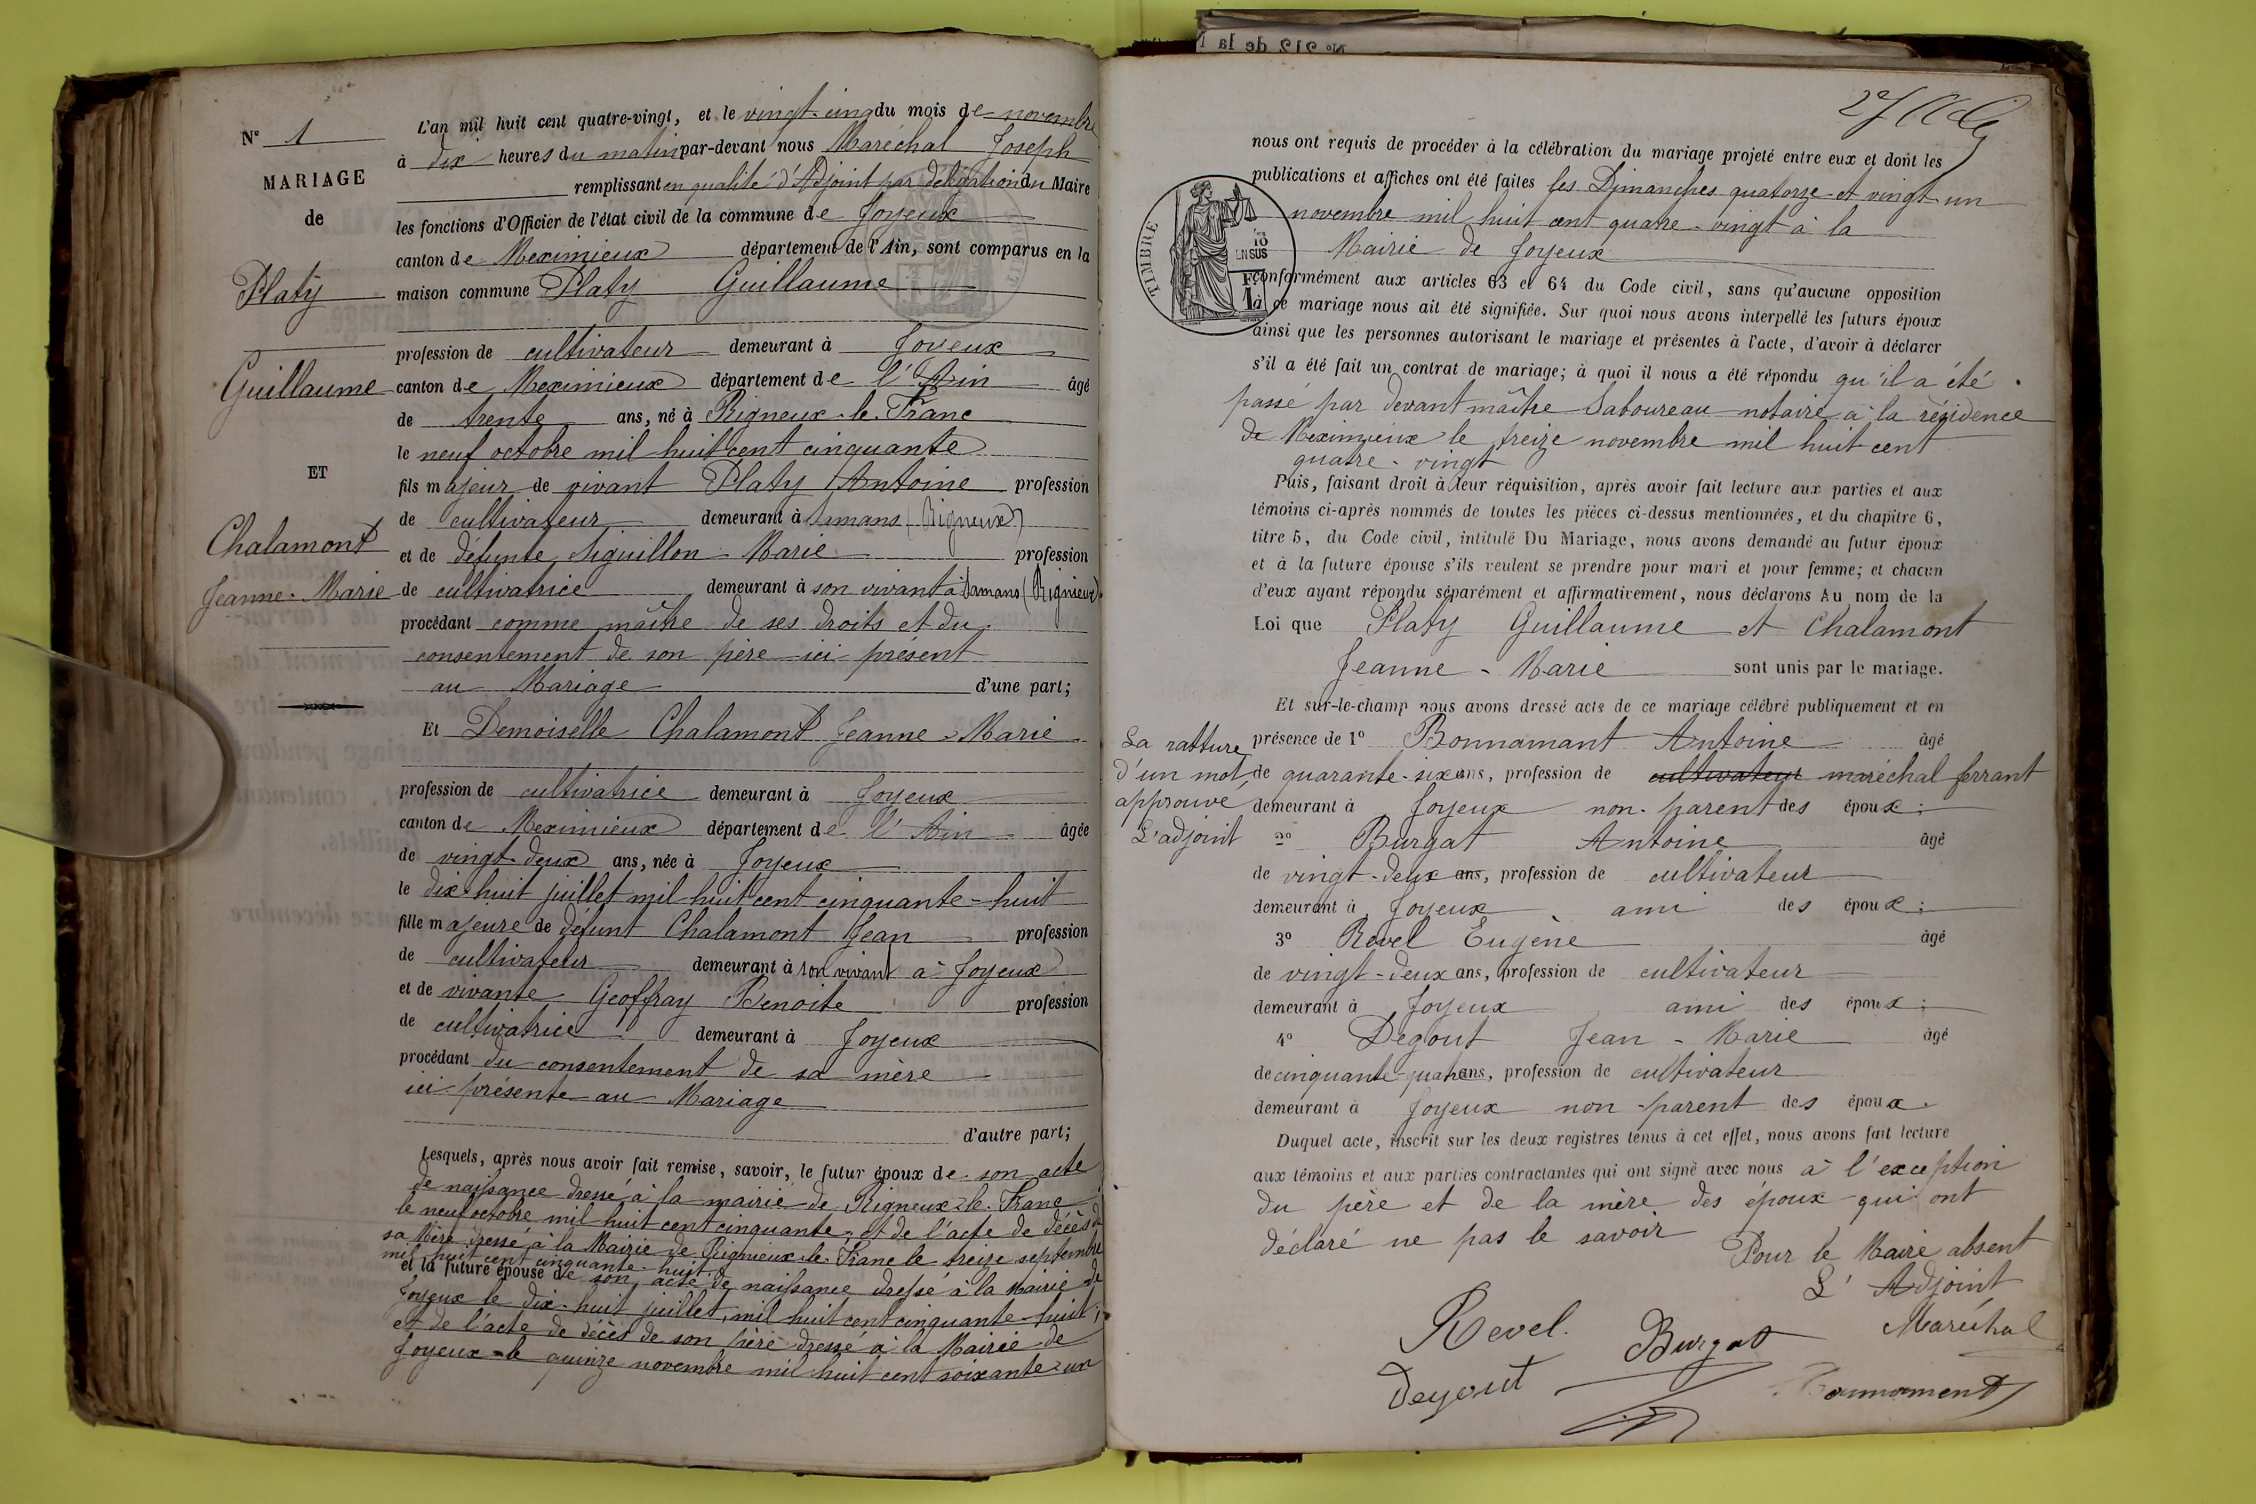 N° 1
MARIAGE
de
Platy
Guillaume
ET
Chalamont
Jeanne-Marie
L'an mil huit cent quatre-vingt, et le vingt-cinq du mois de novembre
à dix heures du matin par-devant nous Maréchal Joseph
remplissant en qualité d'Adjoint par délégation du Maire
les fonctions d'Officier de l'état civil de la commune de Joyeux
canton de Meximieux département de l'Ain, sont comparus en la
maison commune Platy Guillaume
profession de cultivateur demeurant à Joyeux
canton de Meximieux département de l'Ain âgé
de trente ans, né à Rigneux-le-Franc
le neuf octobre mil huit cent cinquante
fils majeur de vivant Platy Antoine profession
de cultivateur demeurant à Samans (Rigneux)
et de défunte Siguillon Marie profession
de cultivatrice demeurant à son vivant à Samans (Rignieux)
procédant comme maître de ses droits et du
consentement de son père ici présent
au Mariage d'une part;
Et Demoiselle Chalamont Jeanne-Marie
profession de cultivatrice demeurant à Joyeux
canton de Meximieux département de l'Ain âgée
de vingt-deux ans, née à Joyeux
le dix-huit juillet mil huit cent cinquante-huit
fille majeure de défunt Chalamont Jean profession
de cultivateur demeurant à son vivant à Joyeux
et de vivante Geoffray Benoite profession
de cultivatrice demeurant à Joyeux
procédant du consentement de sa mère
ici présente au Mariage
d'autre part;
Lesquels, après nous avoir fait remise, savoir, le futur époux de son acte
de naissance dressé à la mairie de Rigneux-le-Franc
le neuf octobre mil huit cent cinquante, et de l'acte de décès de
sa Mère dressé à la Mairie de Rignieux-le-Franc le treize septembre
mil huit cent cinquante-huit
et la future épouse de son acte de naissance dressé à la Mairie de
Joyeux le dix-huit juillet, mil huit cent cinquante-huit;
et de l'acte de décès de son père dressé à la Mairie de
Joyeux le quinze novembre mil huit cent soixante-un
nous ont requis de procéder à la célébration du mariage projeté entre eux et dont les
publications et affiches ont été faites les Dimanches quatorze et vingt un
novembre mil huit cent quatre-vingt à la
Mairie de Joyeux
TIMBRE
conformément aux articles 63 et 64 du Code civil, sans qu'aucune opposition
à ce mariage nous ait été signifiée. Sur quoi nous avons interpellé les futurs époux
ainsi que les personnes autorisant le mariage et présentes à l'acte, d'avoir à déclarer
s'il a été fait un contrat de mariage; à quoi il nous a été répondu qu'il a été
passé par devant maître Saboureau notaire à la résidence
de Meximieux le treize novembre mil huit cent
quatre-vingt
Puis, faisant droit à leur réquisition, après avoir fait lecture aux parties et aux
témoins ci-après nommés de toutes les pièces ci-dessus mentionnées, et du chapitre 6,
titre 5, du Code civil, intitulé Du Mariage, nous avons demandé au futur époux
et à la future épouse s'ils veulent se prendre pour mari et pour femme; et chacun
d'eux ayant répondu séparément et affirmativement, nous déclarons Au nom de la
Loi que Platy Guillaume et Chalamont
Jeanne-Marie sont unis par le mariage.
Et sur-le-champ nous avons dressé acte de ce mariage célébré publiquement et en
présence de 1° Bonnamant Antoine âgé
de quarante-six ans, profession de cultivateur maréchal ferrant
demeurant à Joyeux non-parent des époux;
2° Burgat Antoine âgé
de vingt-deux ans, profession de cultivateur
demeurant à Joyeux ami des époux;
3° Revel Eugène âgé
de vingt-deux ans, profession de cultivateur
demeurant à Joyeux ami des époux;
4° Degout Jean-Marie âgé
de cinquante-quatre ans, profession de cultivateur
demeurant à Joyeux non-parent des époux.
La ratture
d'un mot
approuvé
L'adjoint
Duquel acte, inscrit sur les deux registres tenus à cet effet, nous avons fait lecture
aux témoins et aux parties contractantes qui ont signé avec nous à l'exception
du père et de la mère des époux qui ont
déclaré ne pas le savoir
Pour le Maire absent
L'Adjoint
Maréchal
Revel.
Burgat
Degout
Bonnament